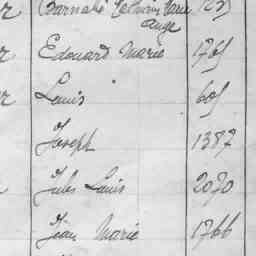 Ange
Edouard Marie 1765
Louis 605
Joseph 1387
Jules Louis 2070
Jean Marie 1766